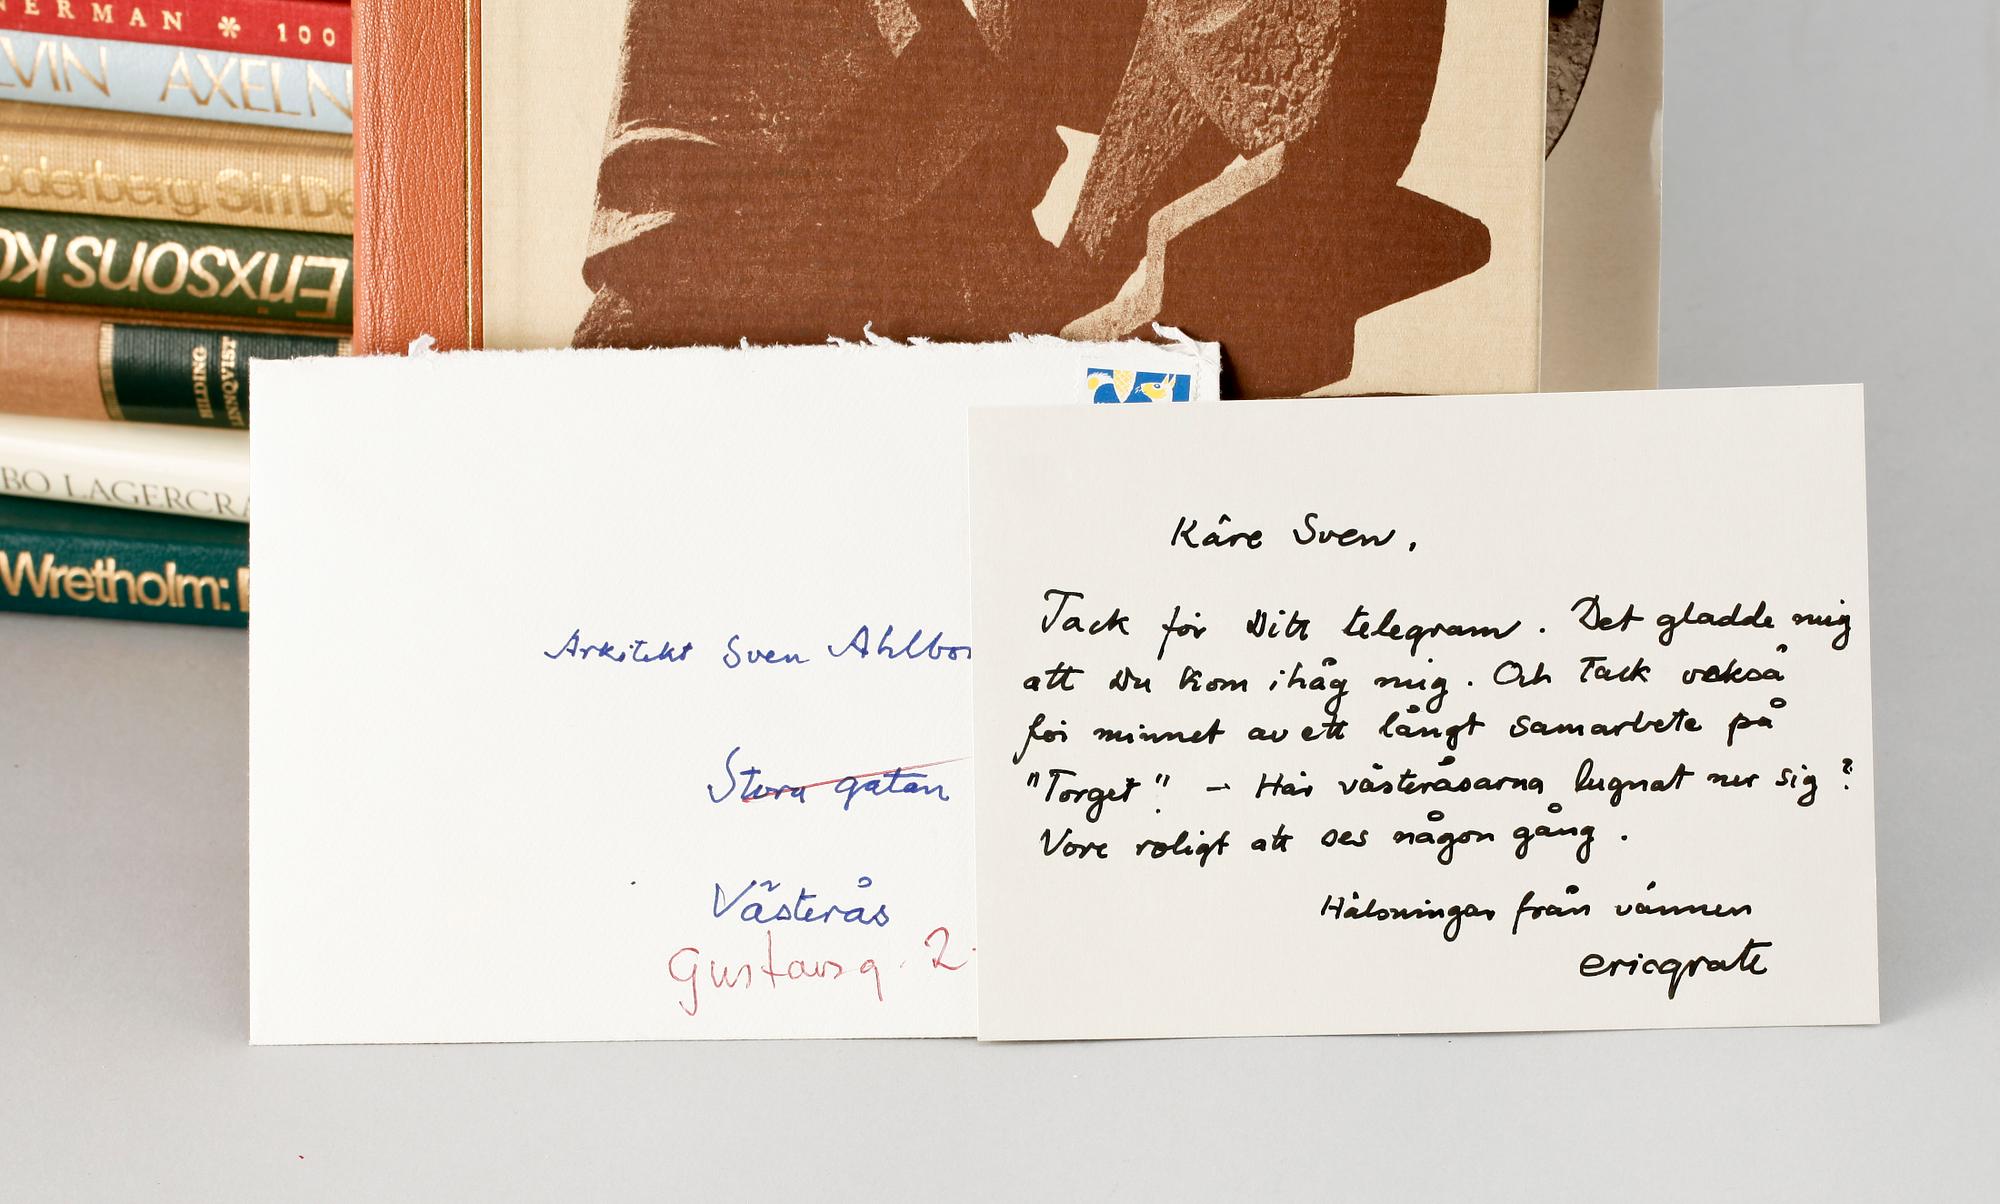 NERMAN * 100
LVIN AXELN
öderberg: Siri De
Erixsons ko
HILDING
LINNQVIST
BO LAGERCRA
Wretholm:
Arkitekt Sven Ahlbo
Stora gatan
Västerås
Gustavsg. 2
Käre Sven,
Tack för Ditt telegram. Det gladde mig
att Du kom ihåg mig. Och Tack också
för minnet av ett långt samarbete på
"Torget" - Har västeråsarna lugnat ner sig?
Vore roligt att ses någon gång.
Hälsningar från vännen
ericgrate